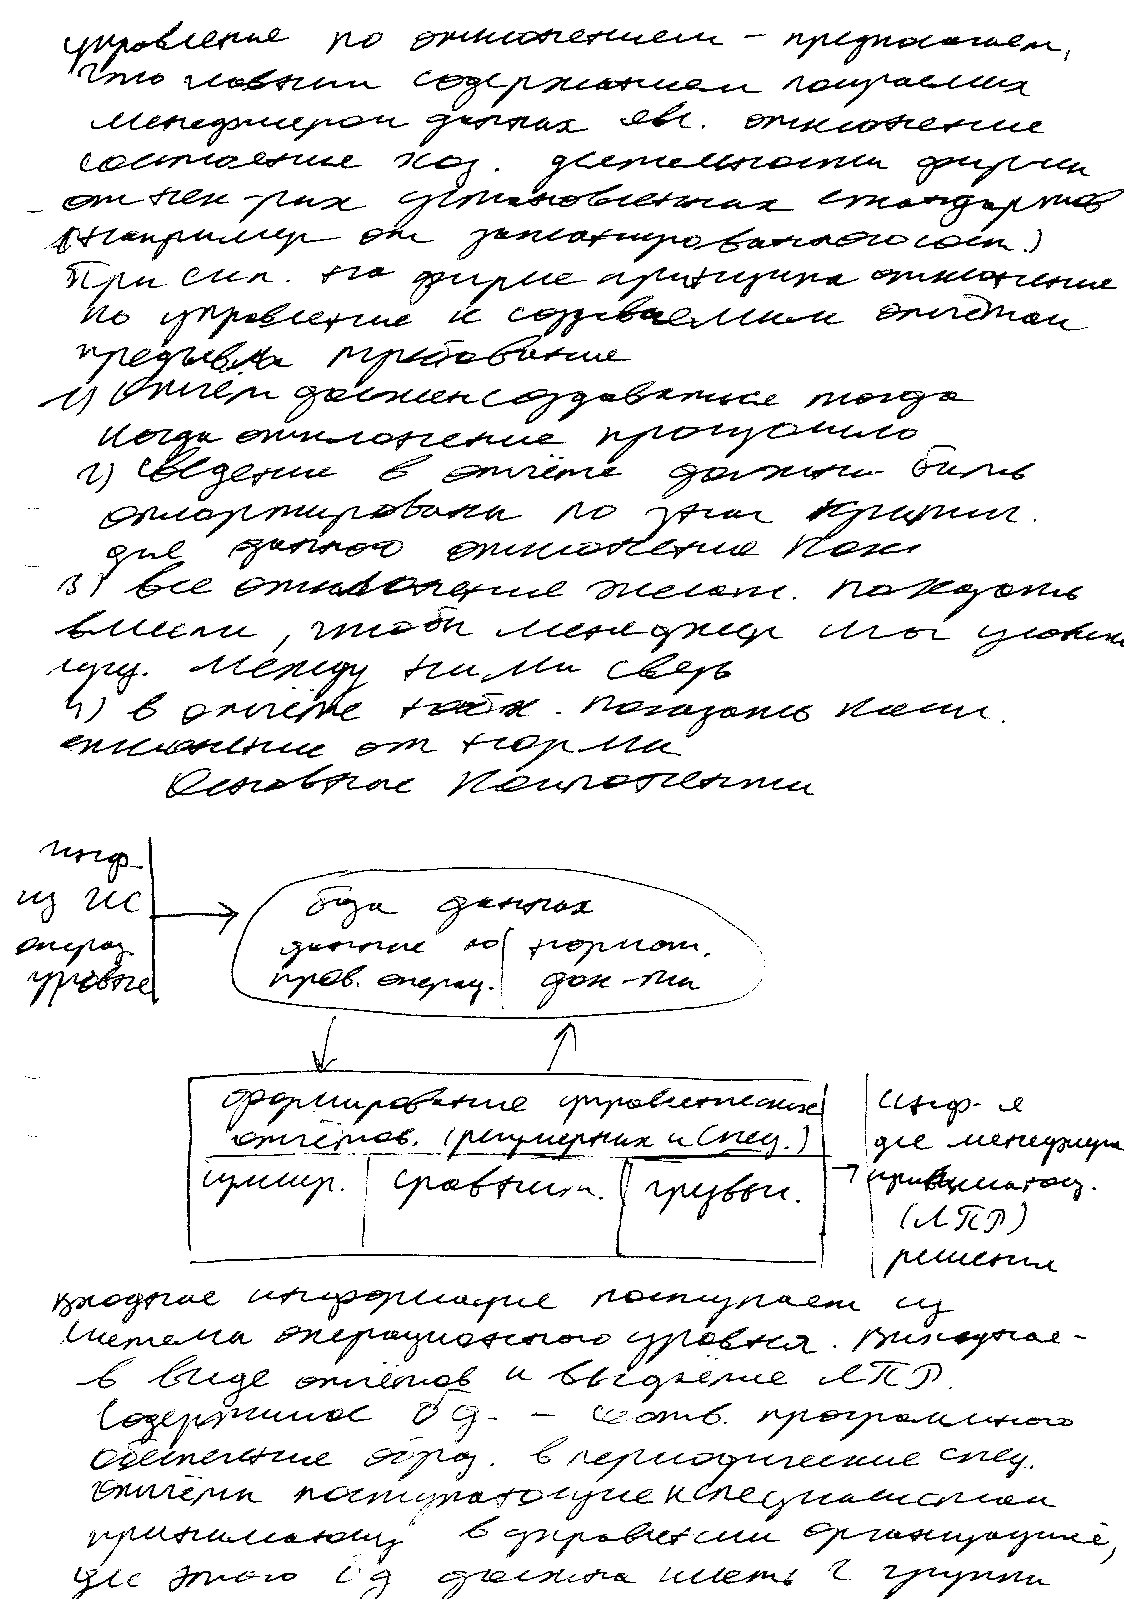 управление по отклонением – предполагает,
что главним содержанием получаемих
менеджером данних явл. отклонение
состояние хоз. деятельности фирми
от нек-рих установленних стандартов
(например от запланированного сост.)
При исп. на фирме принципа отклонение
по управление к создаваемим отчётам
предъявл. требование
1) Отчёт должен создаваться тогда
когда отклонение произошло
2) Сведение в отчёте должни бить
отсортировани по знач критич.
для данного отклонение показ
3) все отклонение желат. показать
вместе, чтоби менеджер мог уловить
сущ. между ними связь
4) в отчёте необх. показать колич.
отклонение от норми
Основние Компоненти
инф.
из ИС
операц.
уровня
база данних
данние по
пров. операц.
нормат.
док-ти
формирование управленческих
отчётов. (регулярних и спец.)
суммир.
сравнит.
чрезвыч.
инф-я
для менеджера
принимающ.
(ЛПР)
решения
входная информация поступает из
система операционного уровня. Виходная -
в виде отчётов и выдление ЛПР.
Содержимое БД. – соотв. програмного
обеспечение образ. в периодические спец.
отчёти поступающие к специалистам
принимающ в управлении организацией,
для этого БД должна иметь 2 групи